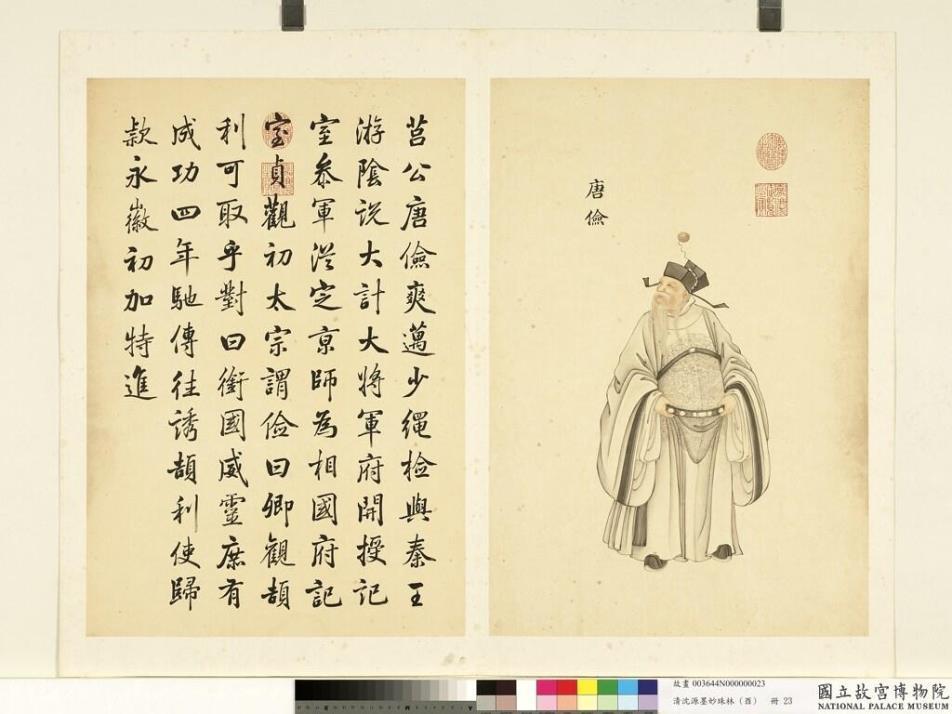 唐儉
莒公唐儉爽邁少繩檢與秦王
游陰説大計大將軍府開授記
室叅軍從定京師為相國府記
室貞觀初太宗謂儉曰卿觀頡
利可取乎對曰銜國威靈庶有
成功四年馳傳往誘頡利使歸
款永徽初加特進
故畫 003644N000000023
清沈源墨妙珠林（酉） 冊 23
國立故宮博物院
NATIONAL PALACE MUSEUM